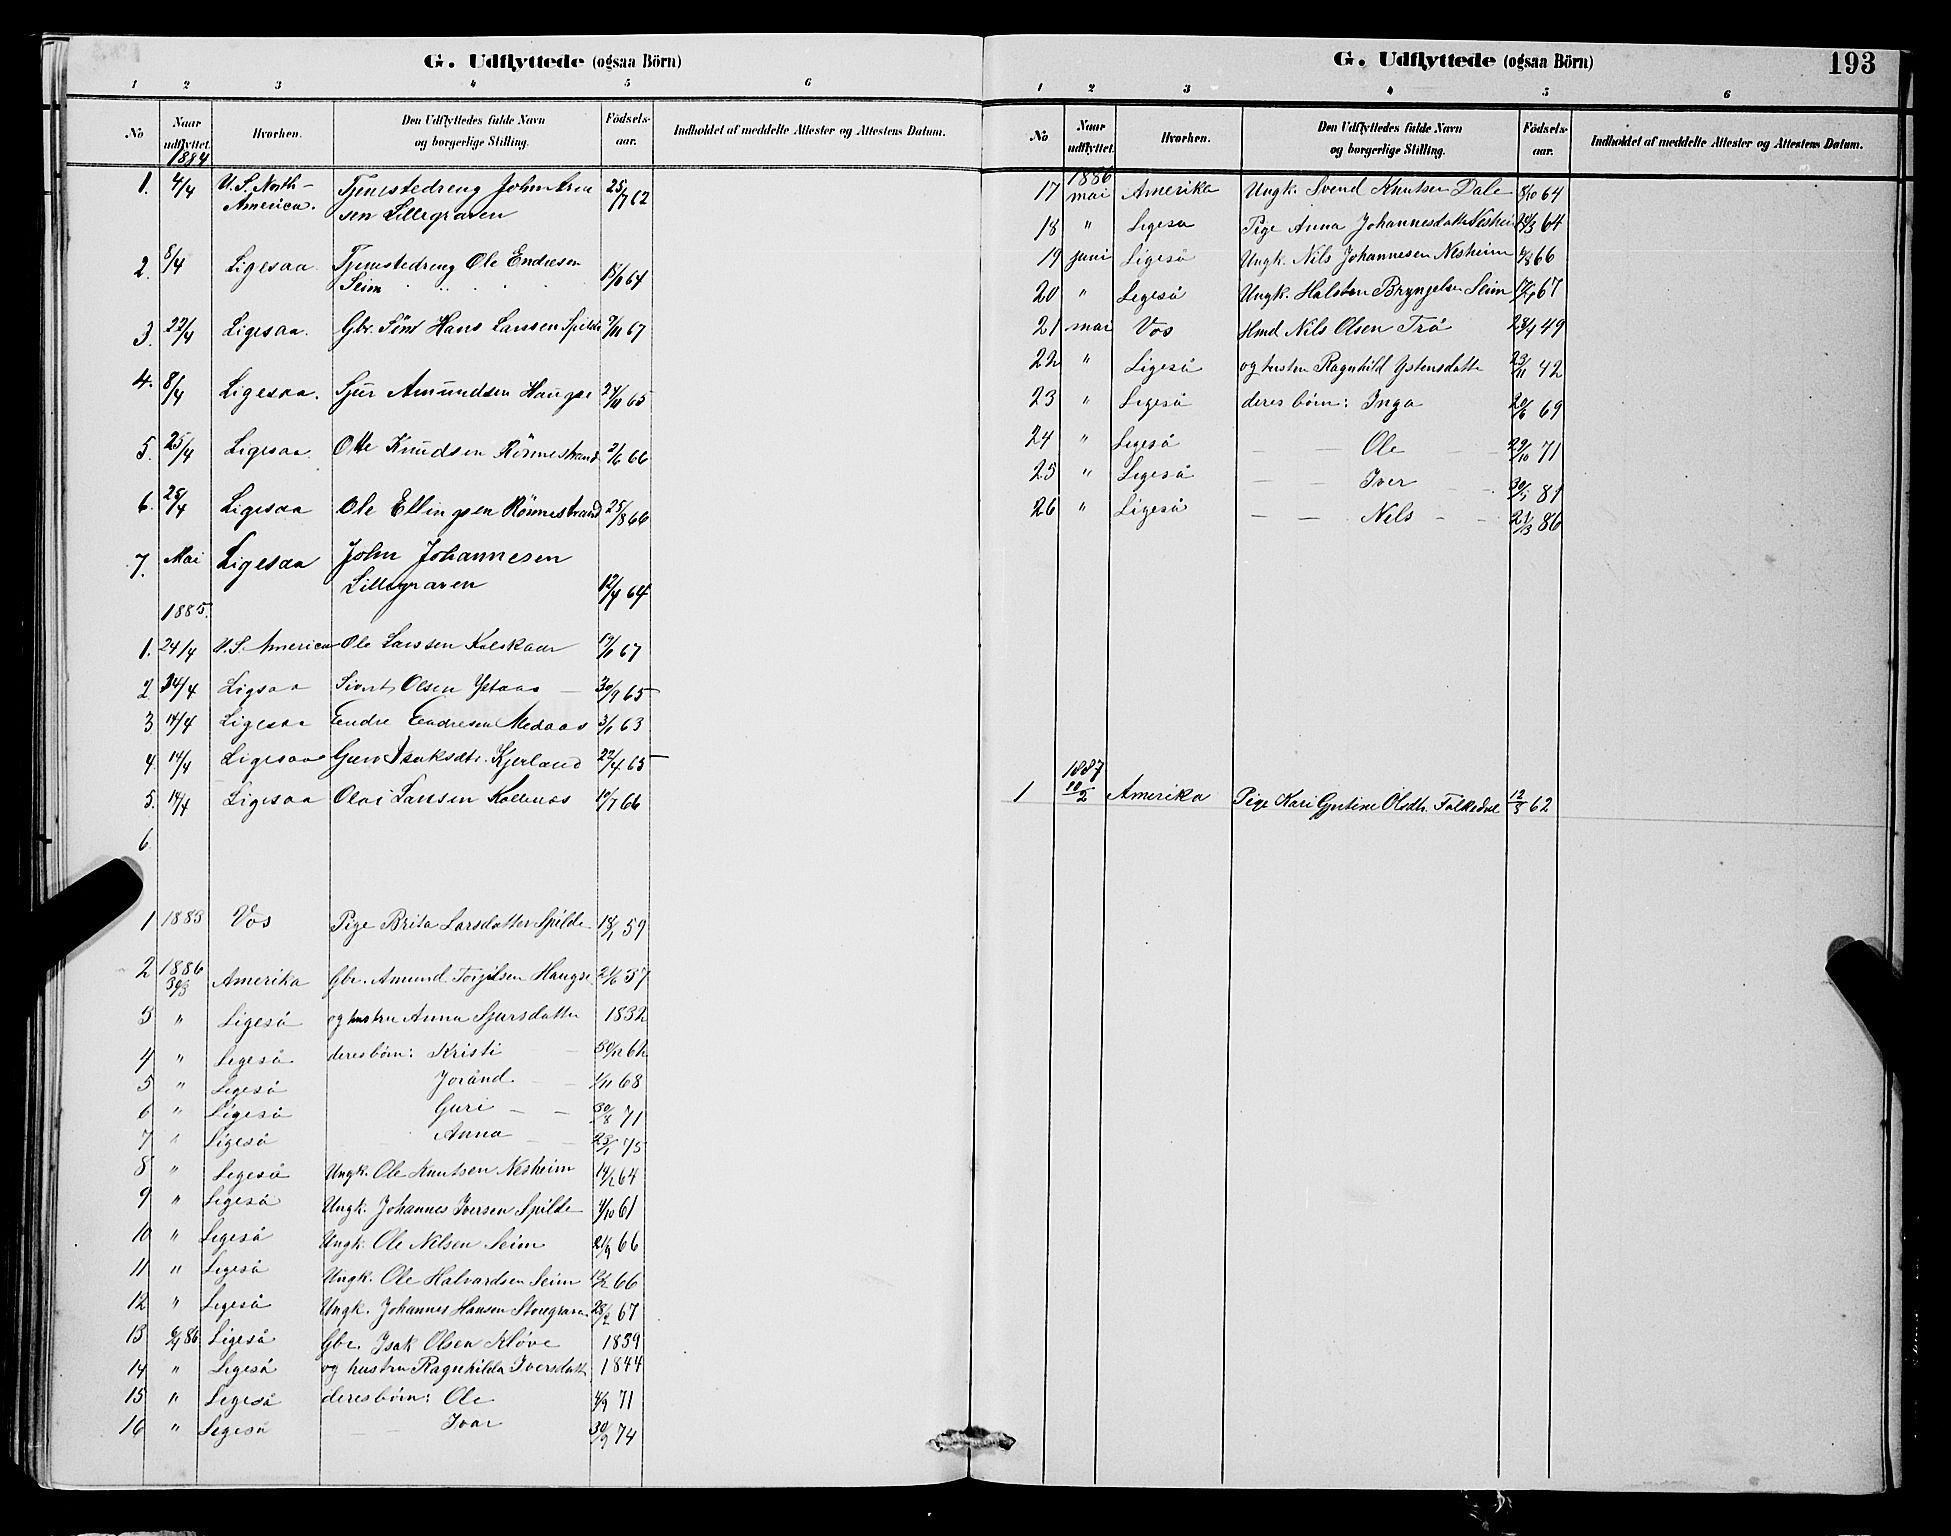 G. Udflyttede (ogsaa Börn)
1 2 3 4 5 6
No Naar udflyttet. Hvorhen. Den Udflyttedes fulde Navn og borgerlige Stilling. Födsels-aar. Indholdet af meddelte Attester og Attestens Datum.
1884
1. 4/4 U.S. North- Tjenestedreng John 25/7 62
America. sen Lillegraven
2. 8/4 Ligesaa Tjenestedreng Ole Endresen 64
Seim
3. 22/4 Ligesaa. Gbr. Sön Hans Larssen Spilde 67
4. 8/4 Ligesaa. Sjur Amundsen Haugse 65
5. 25/4 Ligesaa Otte Knudsen Rönnestrand 2/6 66
6. 25/4 Ligesaa Ole Ellingsen Rönnestrand 25/8 66
7. Mai Ligesaa John Johannesen
Lillegraven 12/4 64
1885.
1. 24/4 U.S. America Ole Larssen 67
2 24/4 Ligsaa Sivert Olsen Ystaas 30/9 65
3 14/4 Ligesaa Endre Endresen Medaas 3/1 63
4. 14/4 Ligesaa Guro Isaksdtr. Kjerland 22/4 65
5. 14/4 Ligesaa Olai Larsen 10/7 66
6
1 1883 Vos Pige Brita Larsdatter Spilde 18/1 59
2 1886 30/3 Amerika Gbr. Amund Torgilsen Haugse 21/6 37
3 " Ligeså og hustru Anna Sjursdatter 1832
4 " Ligeså deres børn: Kristi 30/12
5 " Ligeså Jorånd 1/11 68
6 " Ligeså Guri 30/8 71
7 " Ligeså Anna 23/1 75
8 " Ligeså Ungk. Ole Knutsen Nesheim 14/2 64
9 " Ligeså Ungk. Johannes Iversen Spilde 61
10 " Ligeså Ungk. Ole Nilsen Seim 21/9 66
11 " Ligeså Ungk. Ole Halvardsen Seim 66
12 " Ligeså Ungk. Johannes Hansen Storegraven 28/2 67
13 86 Ligeså Gbr. Isak Olsen Kløve 1839
14 " Ligeså og hustru Ragnhilda Iversdatt 1844
15 " Ligeså deres børn: Ole 4/9 71
16 " Ligeså Ivar 30/9 74
G. Udflyttede (ogsaa Börn) 193
1 2 3 4 5 6
No Naar udflyttet. Hvorhen. Den Udflyttedes fulde Navn og borgerlige Stilling. Födsels-aar. Indholdet af meddelte Attester og Attestens Datum.
1886
17 mai Amerika Ungk. Svend Knutsen Dale 8/10 64
18 " Ligeså Pige Anna Johannesdatter Nesheim 64
19 juni Ligeså Ungk. Nils Johannesen Nesheim 66
20 " Ligeså Ungk. Halsten Brynjelsen Seim 67
21 mai Vos Hmd Nils Olsen Trå 49
22 " Ligeså og hustru Ragnhild Ystensdatte 23/11 42
23 " Ligeså deres børn: Inga 20/6 69
24 " Ligeså Ole 29/10 71
25 " Ligeså Iver 81
26 " Ligeså Nils 21/3 86
1887
1 10/2 Amerika Pige Kari Gjertine Olsdtr. Folkedal 12/3 62